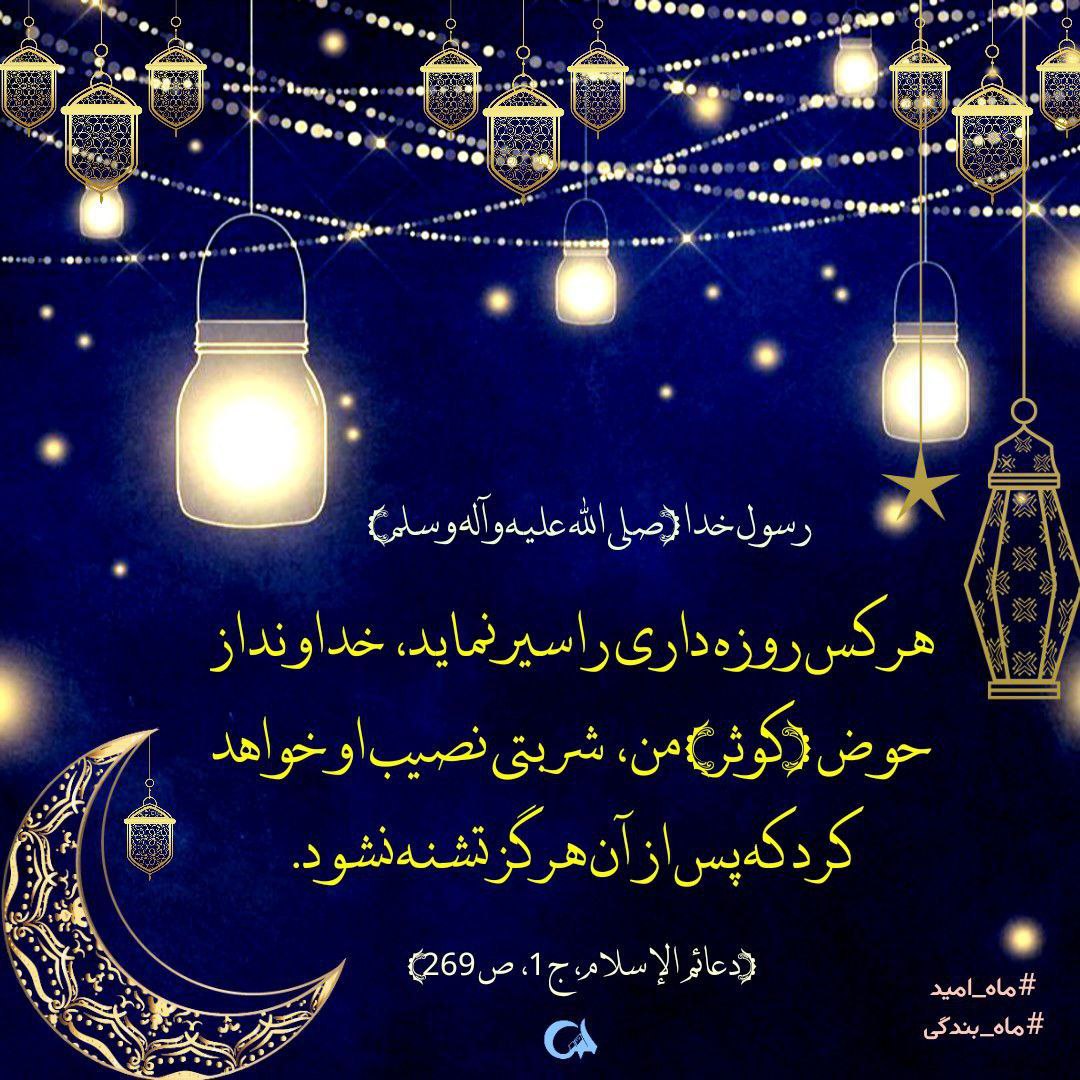 رسول خدا (صلی الله علیه وآله وسلم)
هر کس روزه داری را سیر نماید، خداوند از
حوض (کوثر) من، شربتی نصیب او خواهد
کرد که پس از آن هرگز تشنه نشود.
(دعائم الإسلام، ج1، ص269)
#ماه_امید
#ماه_بندگی